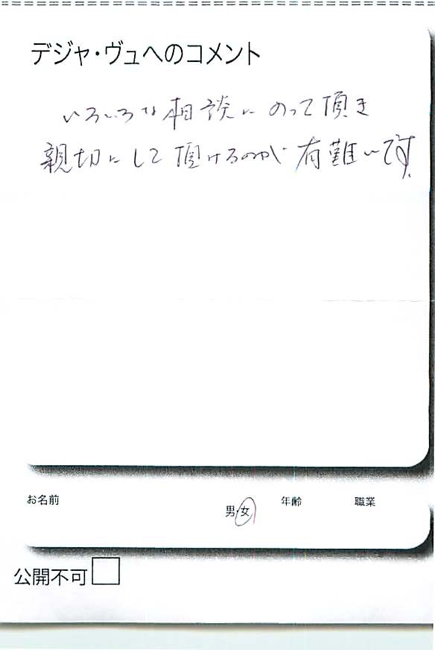 デジャ・ヴュへのコメント
いろいろな相談にのって頂き
親切にして頂けるのが有難いです。
お名前
男・女
年齢
職業
公開不可